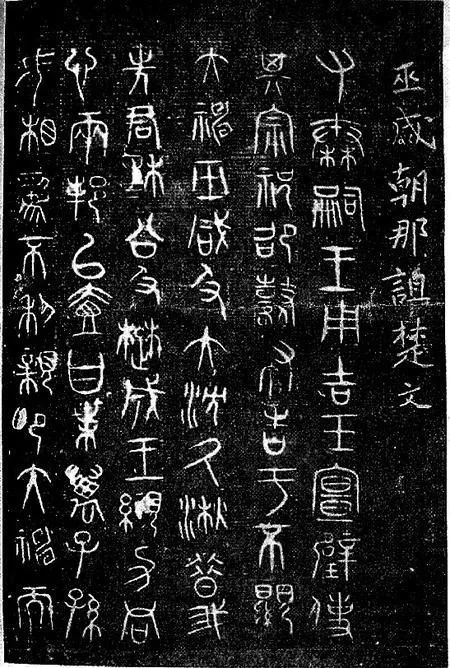 巫咸朝那詛楚文
又秦嗣王用吉玉宣璧使
其宗祝邵鼛布告于不顯
大神巫咸及大沈久湫昔我
先君穆公及楚成王繆力同
心兩邦以齋曰葉萬子孫
毋相為不利親卬大神而